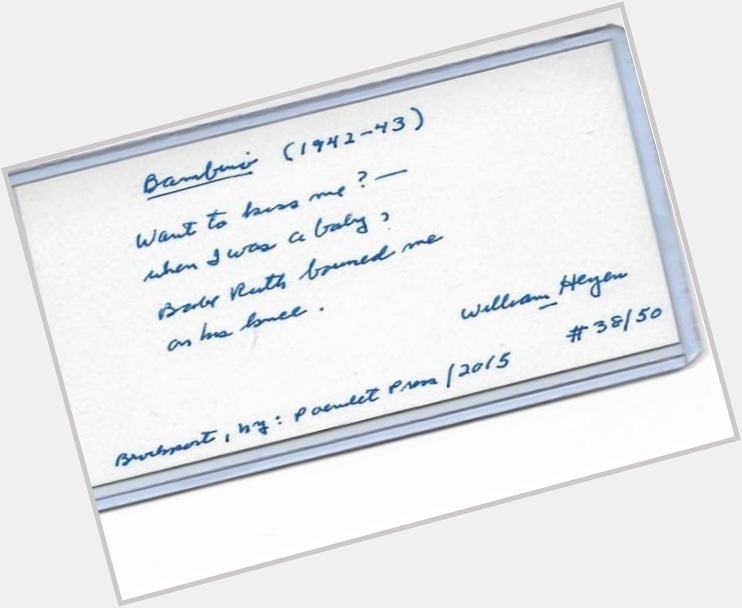 Bambino (1942-43)
Want to kiss me? —
when I was a baby,
Babe Ruth bounced me
on his knee.
William Heyen
#38/50
Brockport, NY: Poemlet Press/2015